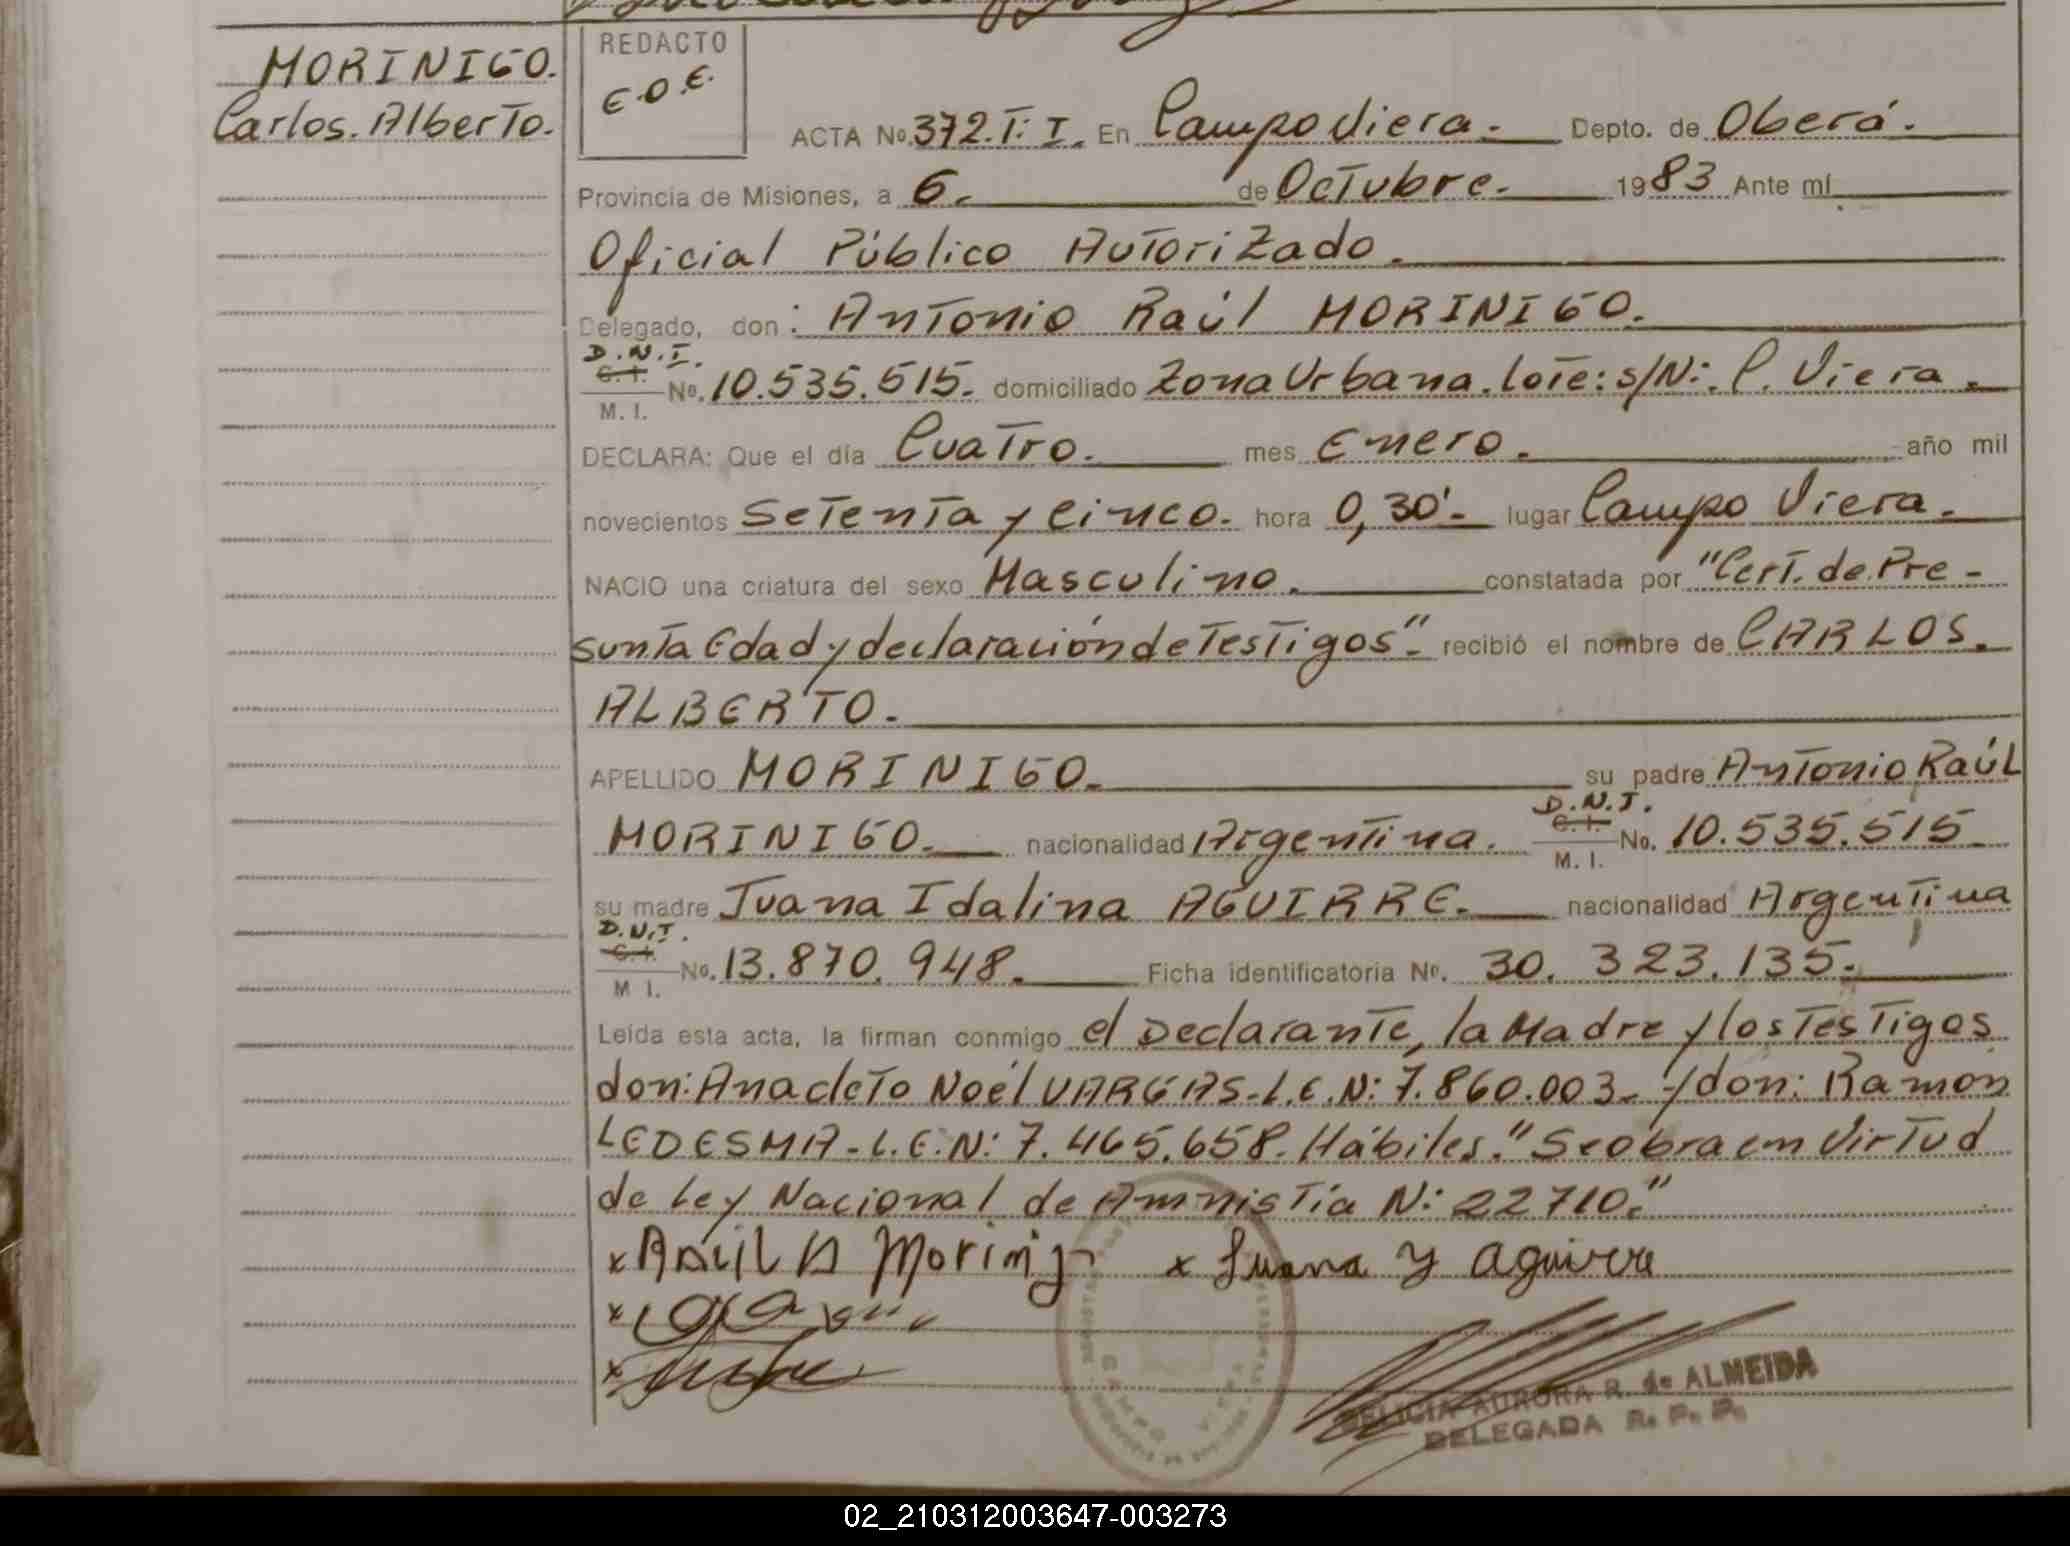 MORINIGO.
Carlos. Alberto.
REDACTO
E.O.E.
ACTA No. 372. T: I. En Campo Viera. Depto. de Oberá.
Provincia de Misiones, a 6. de Octubre. 1983 Ante mí
Oficial Público Autorizado.
Delegado, don: Antonio Raúl MORINIGO.
D.N.I.
C. I.
M. I.
No. 10.535.515. domiciliado Zona Urbana. lote: s/N:. C. Viera.
DECLARA: Que el día Cuatro. mes Enero. año mil
novecientos Setenta y Cinco. hora 0,30'. lugar Campo Viera.
NACIO una criatura del sexo Masculino. constatada por "Cert. de Pre-
sunta Edad y declaración de Testigos". recibió el nombre de CARLOS.
ALBERTO.
APELLIDO MORINIGO. su padre Antonio Raúl
MORINIGO. nacionalidad Argentina. D.N.I. C. I. M. I. No. 10.535.515
su madre Juana Idalina AGUIRRE. nacionalidad Argentina
D.N.I.
C. I.
M I.
No. 13.870.948. Ficha identificatoria No. 30. 323.135.
Leída esta acta, la firman conmigo el Declarante, la Madre y los Testigos
don: Anacleto Noél VARGAS-L.E.N: 7.860.003- y don: Ramon
LEDESMA-L.E.N: 7.465.658. Hábiles. "Se obra em Virtud
de Ley Nacional de Amnistía N: 22710."
x Juana Y Aguirre
CAMPO VIERA
FELICIA AURORA R. de ALMEIDA
DELEGADA R. P. P.
02_210312003647-003273